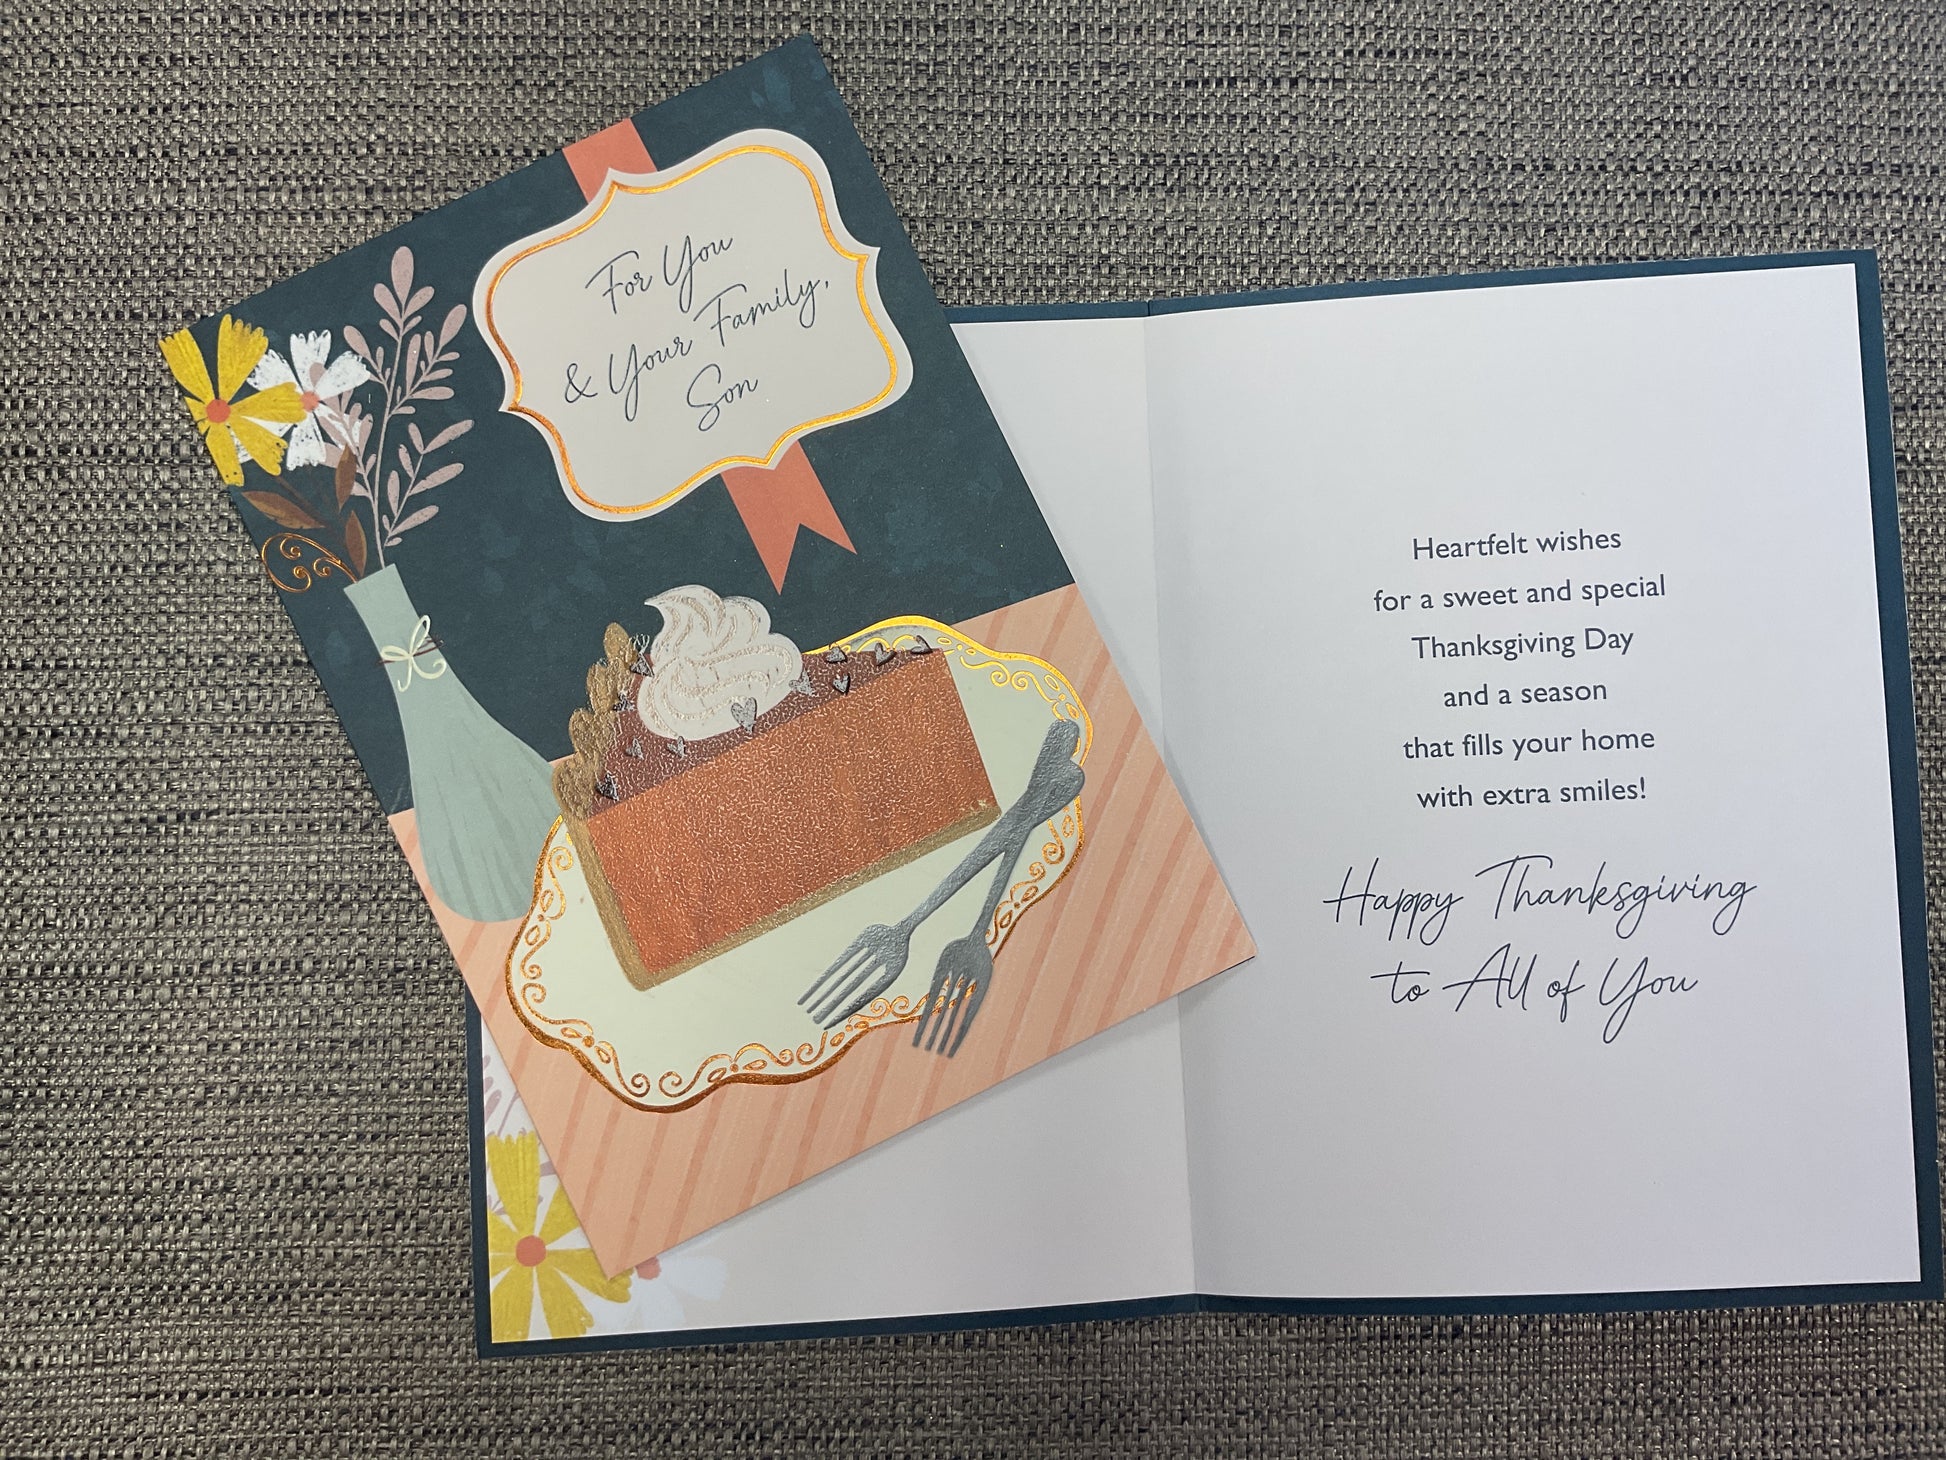 For You
& Your Family,
Son
Heartfelt wishes
for a sweet and special
Thanksgiving Day
and a season
that fills your home
with extra smiles!
Happy Thanksgiving
to All of You